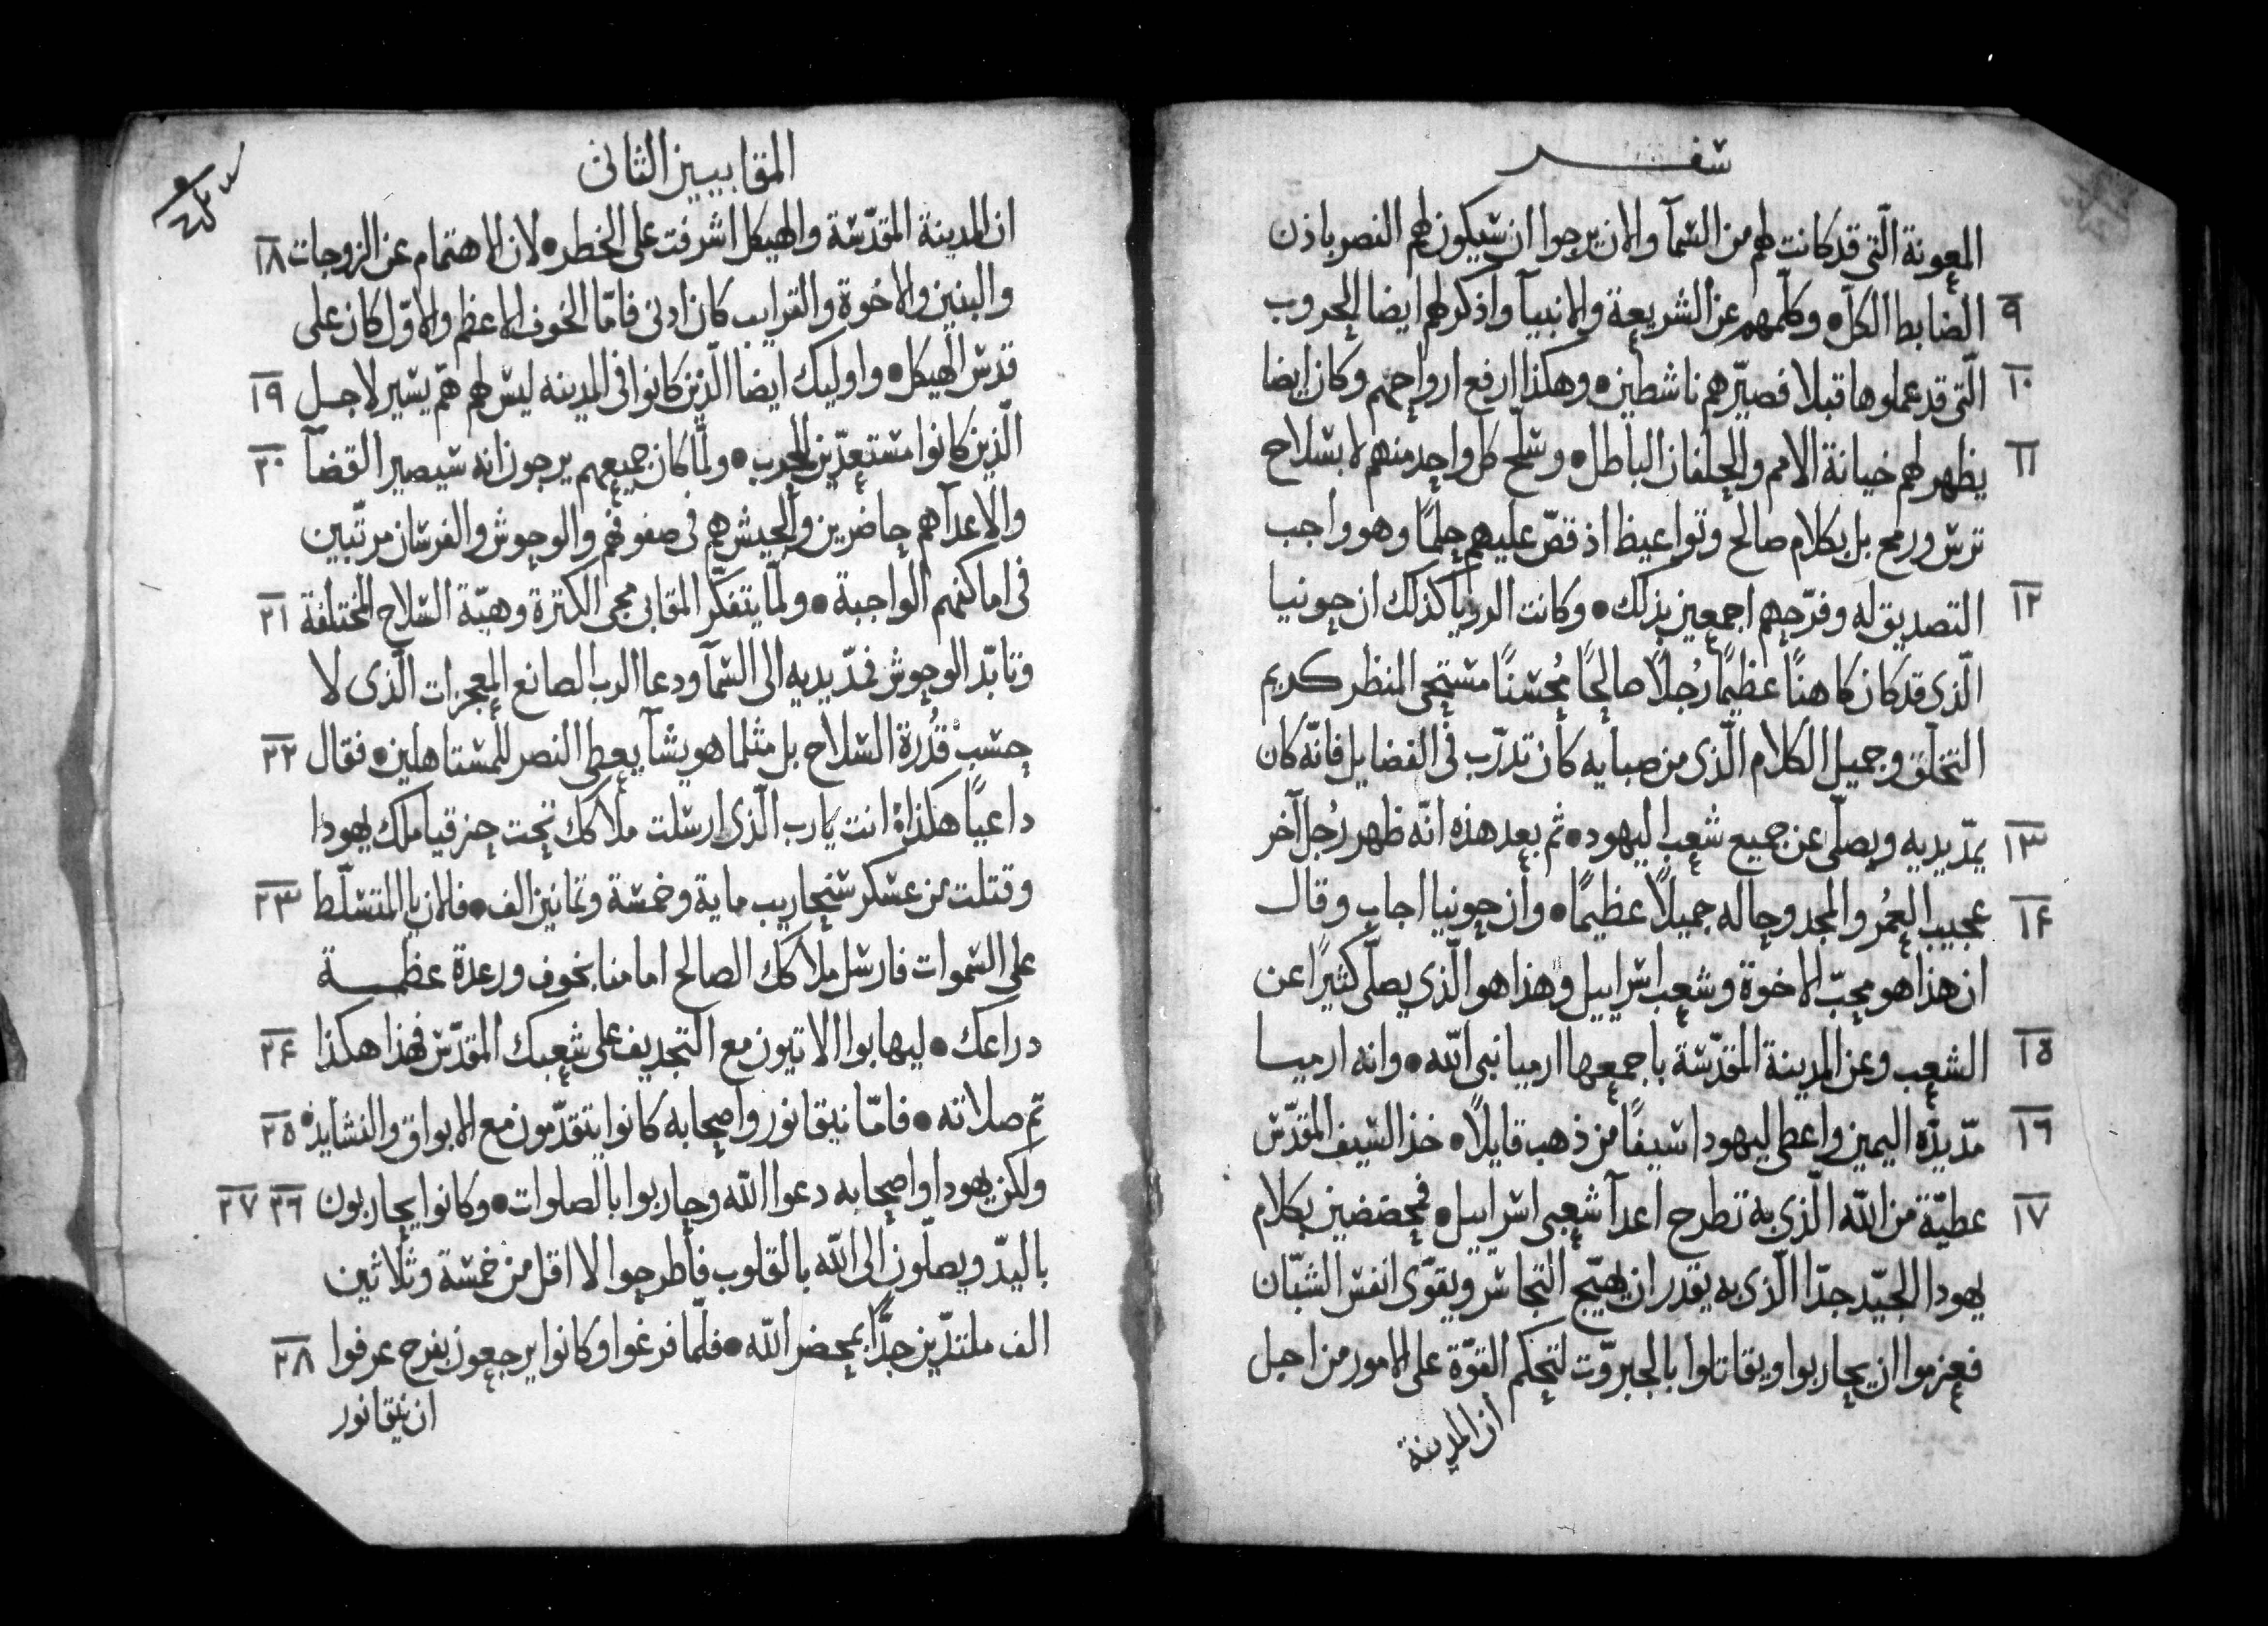 سفر
المعونة الّتى قد كانت لهم من السّمآ والان يرجوا ان سيكون لهم النصر باذن
٩ الضابط الكلّ • وكلّمهم عن الشريعة والانبيآ واذكر لهم ايضا الحروب
١٠ الّتى قد عملوها قبلا فصيّرهم ناشطين • وهكذا ارفع ارواحهم وكان ايضا
١١ يظهر لهم خيانة الامم والحلفان الباطل • وسلّح كل واحد منهم لا بسلاح
ترس ورمح بل بكلام صالح وتواعيظ اذ قصّ عليهم حلمًا وهو واجب
١٢ التصديق له وفرّحهم اجمعين بذلك • وكانت الرويا كذلك ان حونيا
الّذى قد كان كاهنًا عظيمًا رجُلًا صالحًا مُحسنًا مستحى المنظر كريم
التخلّق وجميل الكلام الّذى من صبايه كان تدرّب فى الفضايل فانّه كان
١٣ يمدّ يديه ويصلّى عن جميع شعب اليهود • ثم بعد هذه انّه ظهر رُجل آخر
١٤ عجيب العُمر والمجد وحاله جميلًا عظيمًا • وان حونيا اجاب وقال
ان هذا هو محبّ الاخوة وشعب اسراييل وهذا هو الّذى يصلّى كثيرًا عن
١٥ الشعب وعن المدينة المقدّسة باجمعها ارميا نبى الله • وانه ارميا
١٦ مدّ يدّه اليمين واعطى ليهودا سيفًا من ذهب قايلًا • خذ السيف المقدّس
١٧ عطيّة من الله الّذى به تطرح اعدآ شعبى اسراييل • فحضضين بكلام
يهودا الجيّد جدّا الّذى به يقدر ان يهيّج التجاسر ويقوّى انفس الشبّان
فعزموا ان يحاربوا ويقاتلوا بالجبروّت لتحكم القوّة على الامور من اجل
ان المدينة
المقابيين الثانى
ان المدينة المقدّسة والهيكل اشرفت على الخطر • لان الاهتمام عن الزوجات ١٨
والبنين والاخوة والقرايب كان ادنى فامّا الخوف الاعظم والاوّل كان على
قدس الهيكل • واوليك ايضا الّذين كانوا فى المدينه ليس لهم همّ يسير لاجل ١٩
الّذين كانوا مستعدّين للحرب • ولمّا كان جميعهم يرجون انه سيصير القضآ ٢٠
والاعدآ هم حاضرين والجيش هم فى صفوفهم والوحوش والفرسان مرتّبين
فى اماكنهم الواجبة • ولمّا يتفكّر المقابى مجى الكترة وهيّة السّلاح المختلفة ٢١
وتابّد الوحوش فمدّ يديه الى السّمآ ودعا الرب الصانع المعجزات الّذى لا
حسب قُدرة السّلاح بل مثلما هو يشآ يعطى النصر للمستاهلين • فقال ٢٢
داعيًا هكذا • انت يا رب الّذى ارسلت ملاكك تحت حزقيا ملك يهودا
وقتلت من عسكر سنحاريب ماية وخمسة وثمانين الف • فالان يا المتسلّط ٢٣
على السّموات فارسل ملاكك الصالح امامنا بخوف ورعدة عظمة
دراعك • ليهابوا الاتيون مع التجديف على شعبك المقدّس فهذا هكذا ٢٤
تم صلاته • فامّا نيقانور واصحابه كانوا يتقدّمون مع الابواق والنشايد • ٢٥
ولكن يهودا واصحابه دعوا الله وحاربوا بالصلوات • وكانوا يحاربون ٢٦ ٢٧
باليدّ ويصلّون الى الله بالقلوب فاطرحوا لا اقل من خمسة وثلاثين
الف ملتذّين جدًّا بمحضر الله • فلمّا فرغوا وكانوا يرجعون بفرح عرفوا ٢٨
ان نيقانور